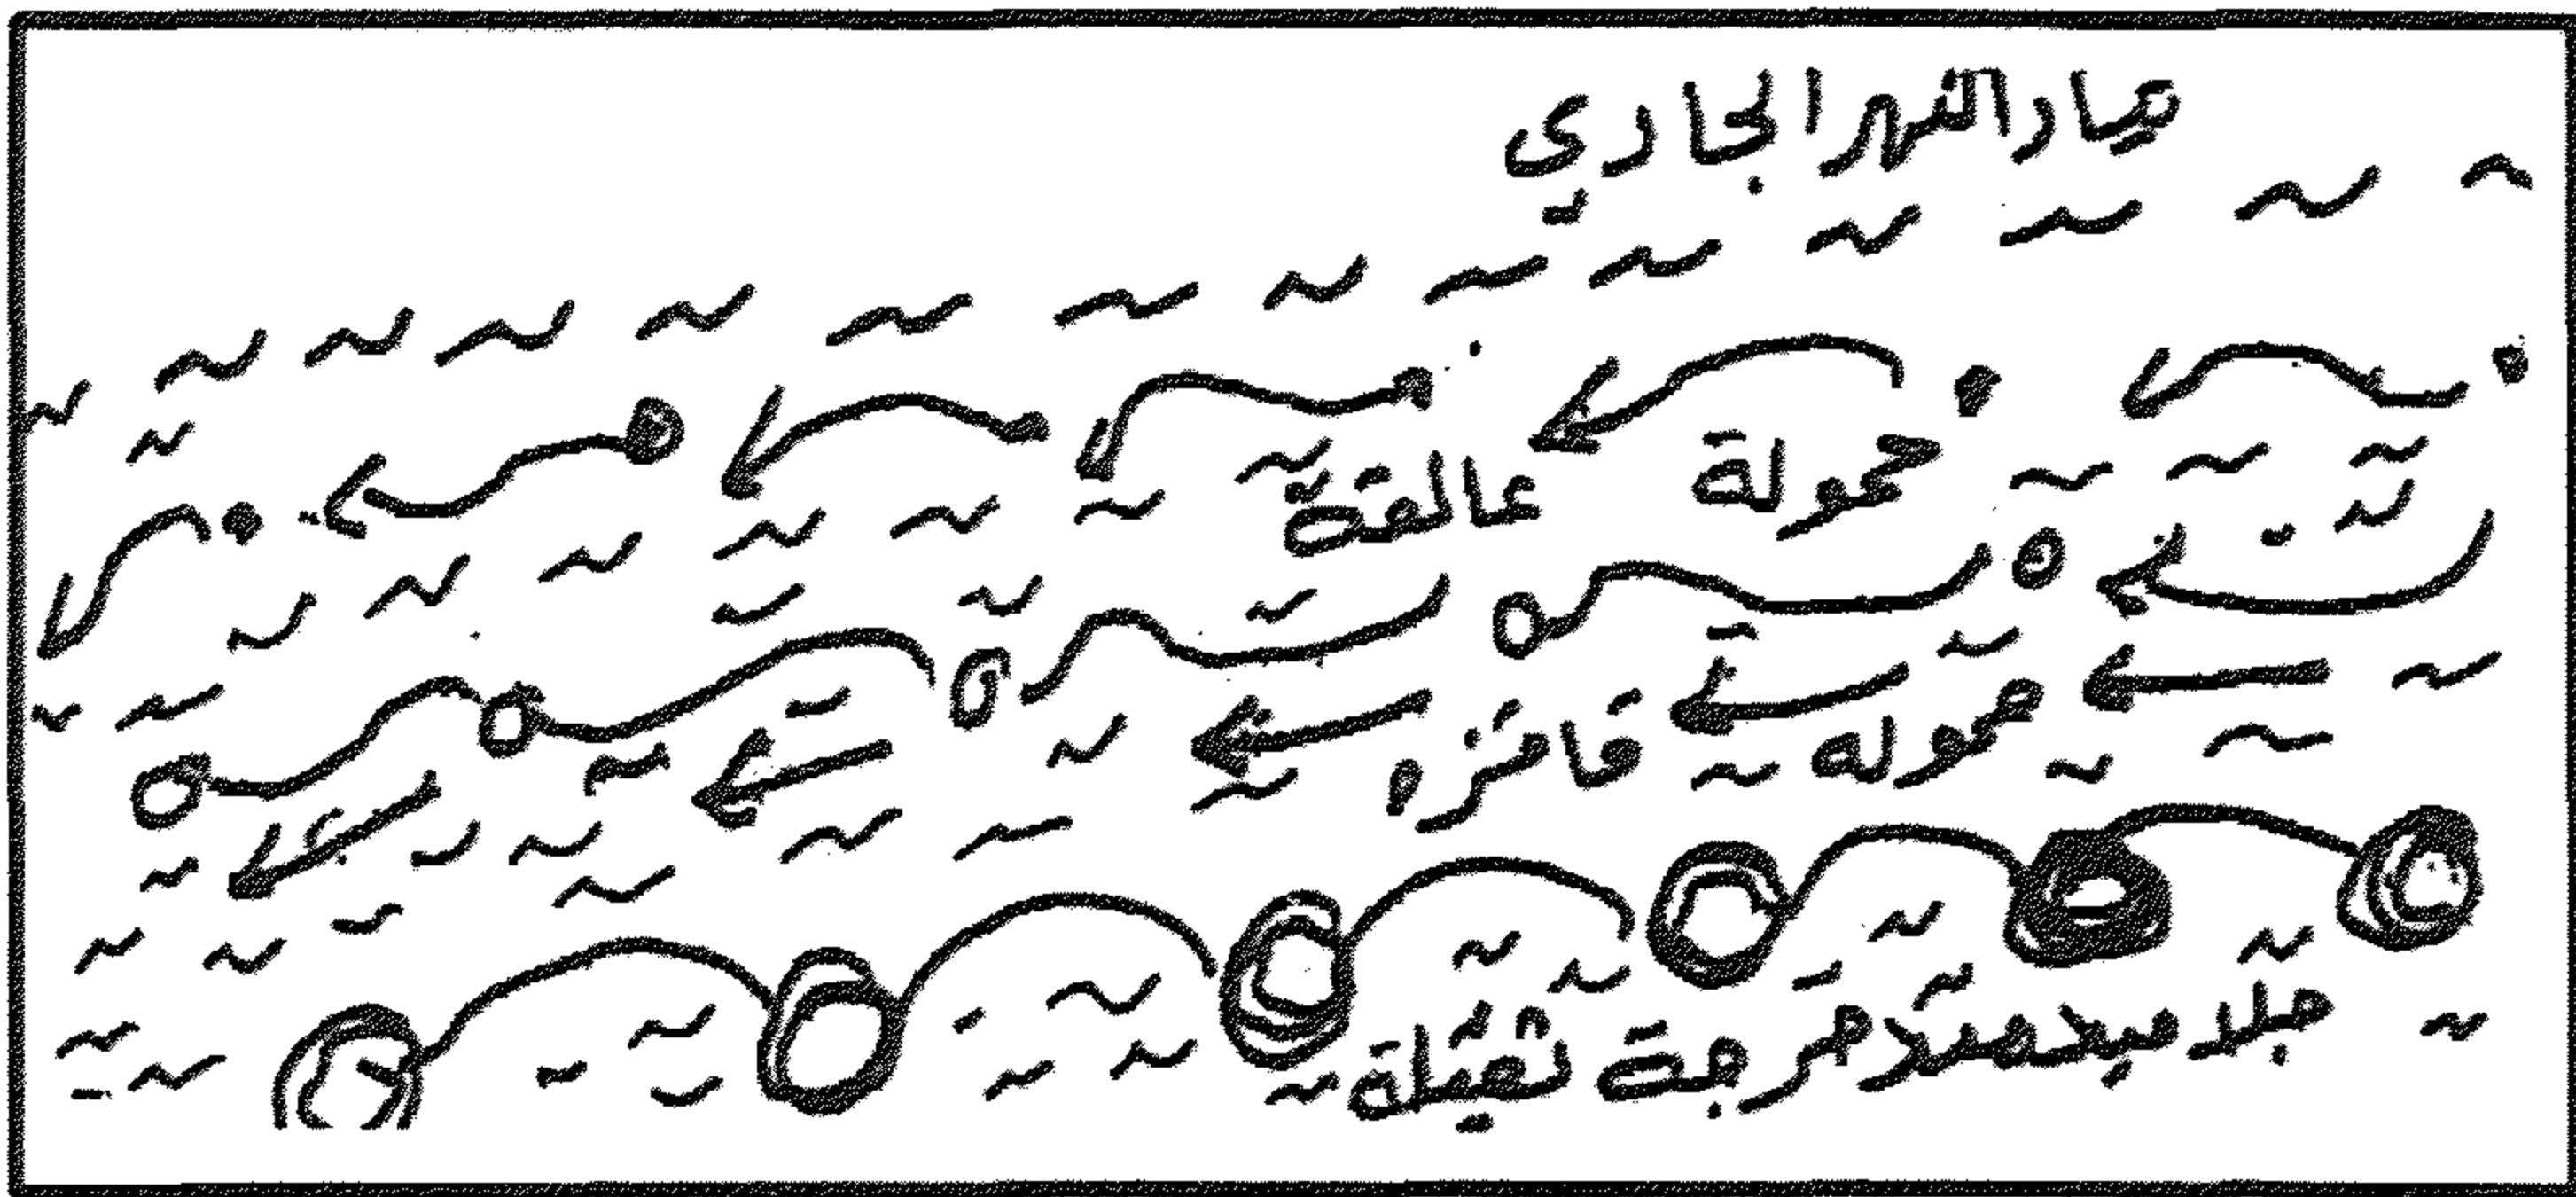 تيار النهر الجاري
حمولة عالقة
حموله قافزه
جلاميد متدحرجة ثقيلة